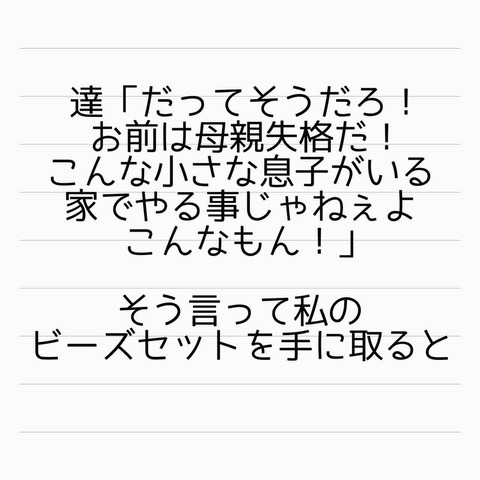 達「だってそうだろ！
お前は母親失格だ！
こんな小さな息子がいる
家でやる事じゃねぇよ
こんなもん！」
そう言って私の
ビーズセットを手に取ると